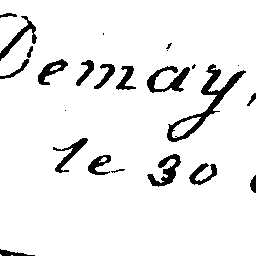 Demay,
le 30